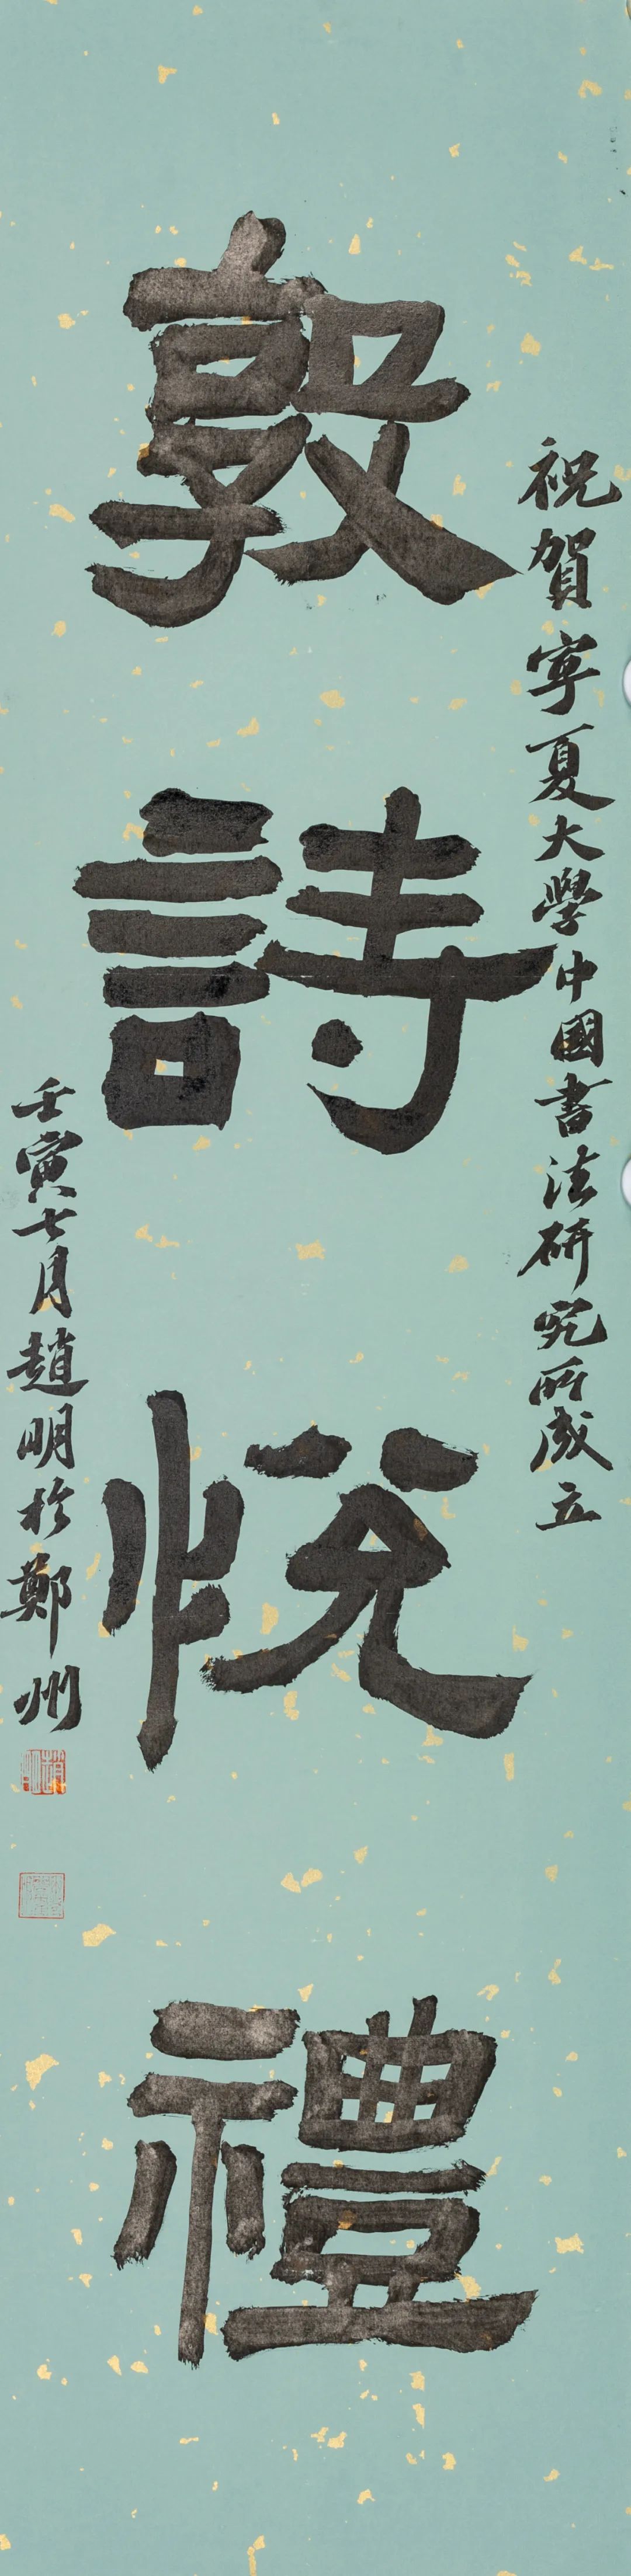 祝賀寧夏大學中國書法研究所成立
敦詩悅禮
壬寅七月趙明於鄭州